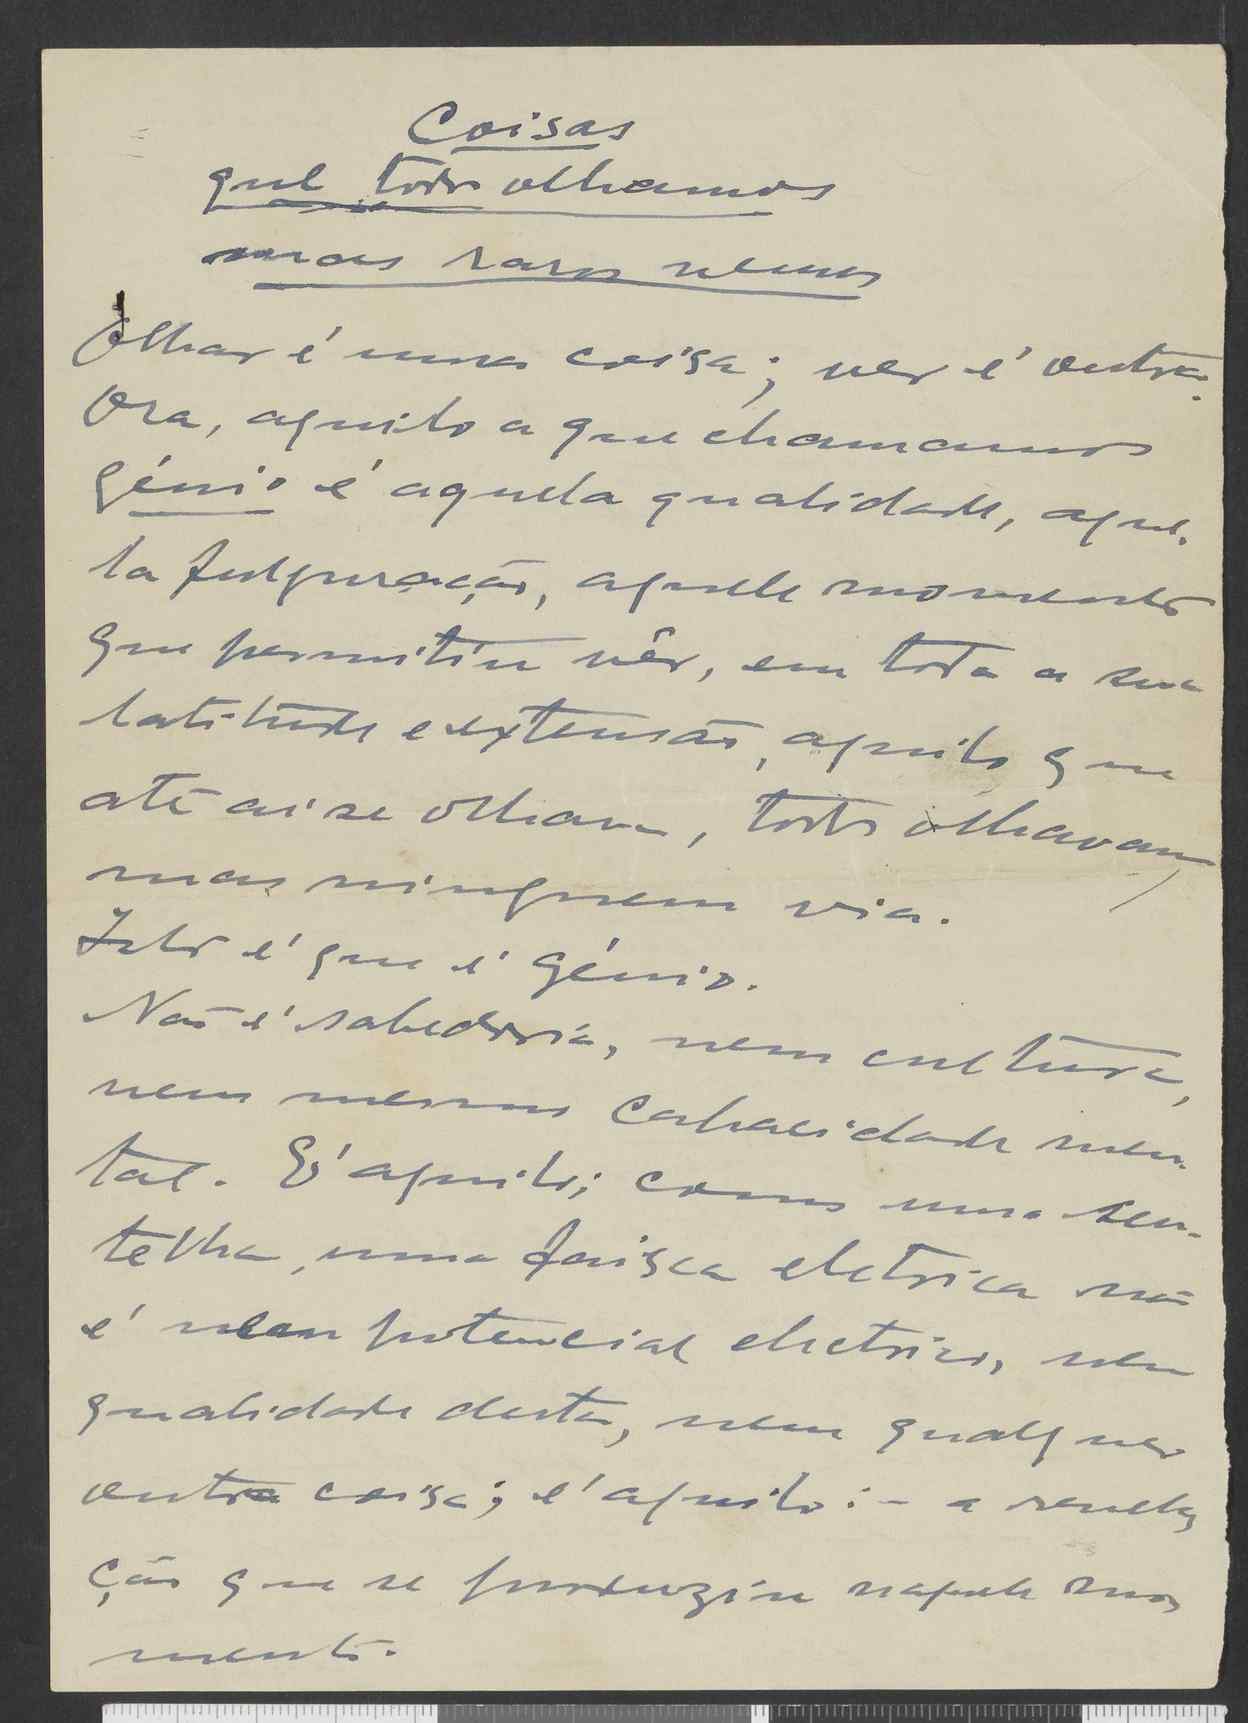 Coisas
que todos olhamos
mas raros vemos
Olhar é uma coisa; ver é outra.
Ora, aquilo a que chamamos
génio é aquela qualidade, aque-
la fulguração, aquele momento
que permitiu vêr, em toda a sua
latitude e extensão, aquilo que
até ai se olhava, todos olhavam,
mas ninguem via.
Isto é que é génio.
Não é sabedoria, nem cultura,
nem mesmo capacidade men-
tal. É aquilo; como uma sen-
telha, uma faisca eletrica não
é nem potencial electrico, nem
qualidade desta, nem qualquer
outra coisa; é aquilo: - a revela-
ção que se produziu naquele mo-
mento.